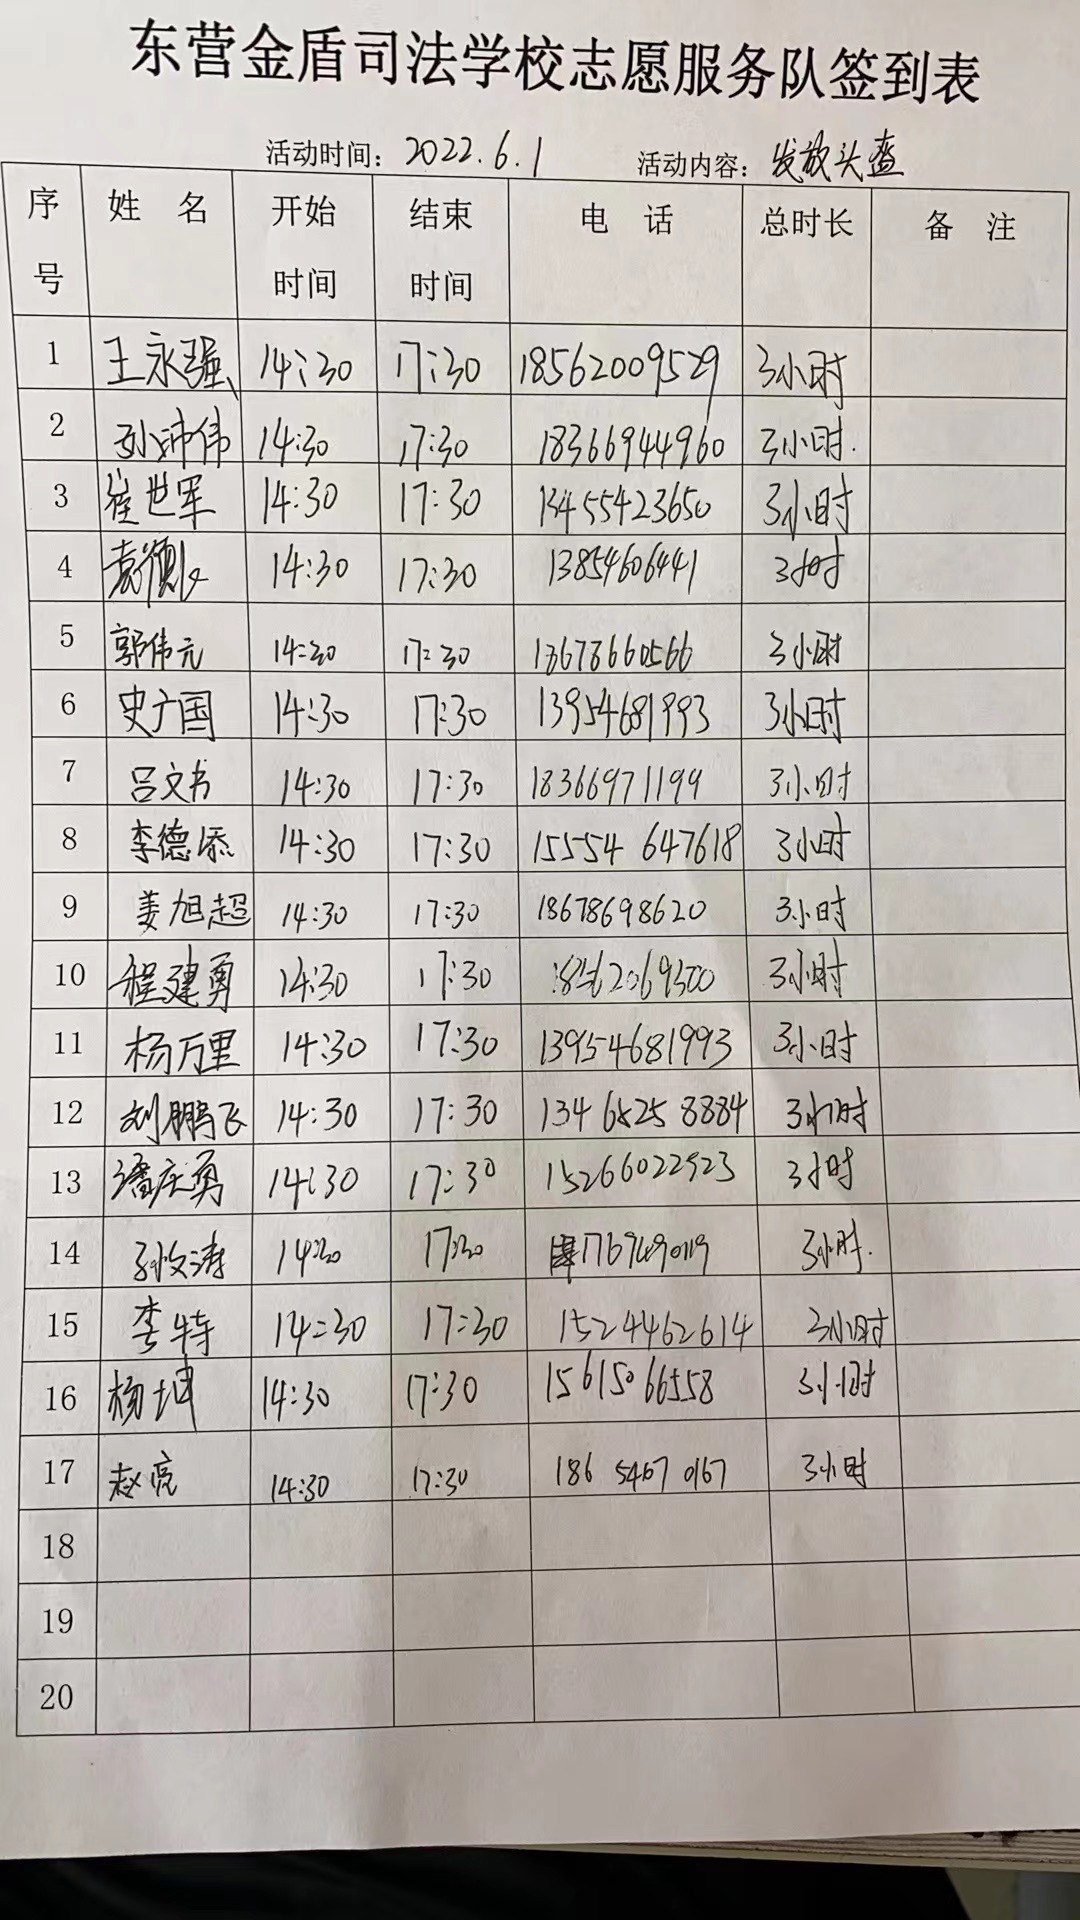 东营金盾司法学校志愿服务队签到表
活动时间：2022.6.1 活动内容：发放头盔
序号 姓名 开始时间 结束时间 电话 总时长 备注
1 王永强 14:30 17:30 18562009529 3小时
2 孙沛伟 14:30 17:30 18366944960 3小时.
3 崔世军 14:30 17:30 13455423650 3小时
4 袁德 14:30 17:30 13854606441 3小时
5 郭伟元 14:30 17:30 13678660566 3小时
6 史广国 14:30 17:30 13954681993 3小时
7 吕文书 14:30 17:30 18366971199 3小时
8 李德添 14:30 17:30 15554 647618 3小时
9 姜旭超 14:30 17:30 18678698620 3小时
10 程建勇 14:30 17:30 3小时
11 杨万里 14:30 17:30 13954681993 3小时
12 刘鹏飞 14:30 17:30 134 6525 8884 3小时
13 潘庆勇 14:30 17:30 15266022523 3小时
14 14:30 17:30 3小时.
15 李特 14:30 17:30 1524462614 3小时
16 杨坤 14:30 17:30 15615066558 3小时
17 赵亮 14:30 17:30 186 5467 0167 3小时
18
19
20